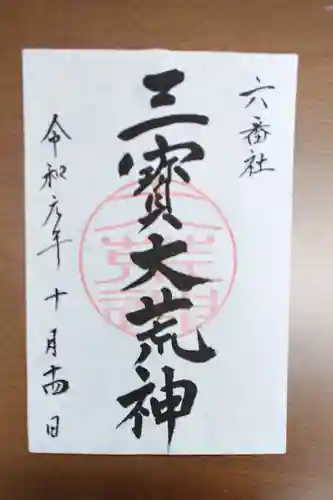 六番社
三寶大荒神
令和元年十月十四日